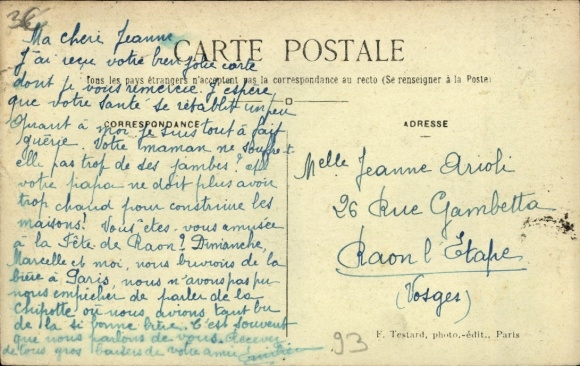 36
Ma cheri Jeanne
CARTE POSTALE
J'ai reçu votre bien jolie carte
Tous les pays étrangers n'acceptent pas la correspondance au recto (Se renseigner à la Poste)
dont je vous remercie. J'espère
que votre santé se rétablit un peu
CORRESPONDANCE
Quant à moi je suis tout à fait
guérie. Votre maman ne souffre-t-
elle pas trop de ses jambes? et
votre papa ne doit plus avoir
trop chaud pour construire les
maisons! Vous êtes-vous amusée
à la Fête de Raon? Dimanche,
Marcelle et moi, nous buvions de la
bière à Paris, nous n'avons pas pu
nous empêcher de parler de la
Chipotte où nous avions tant bu
de la si bonne bière. C'est souvent
que nous parlons de vous. Recevez
de tous gros baisers de votre amie
ADRESSE
Melle Jeanne Arioli
26 Rue Gambetta
Raon l'Etape
(Vosges)
93
F. Testard, photo.-édit., Paris